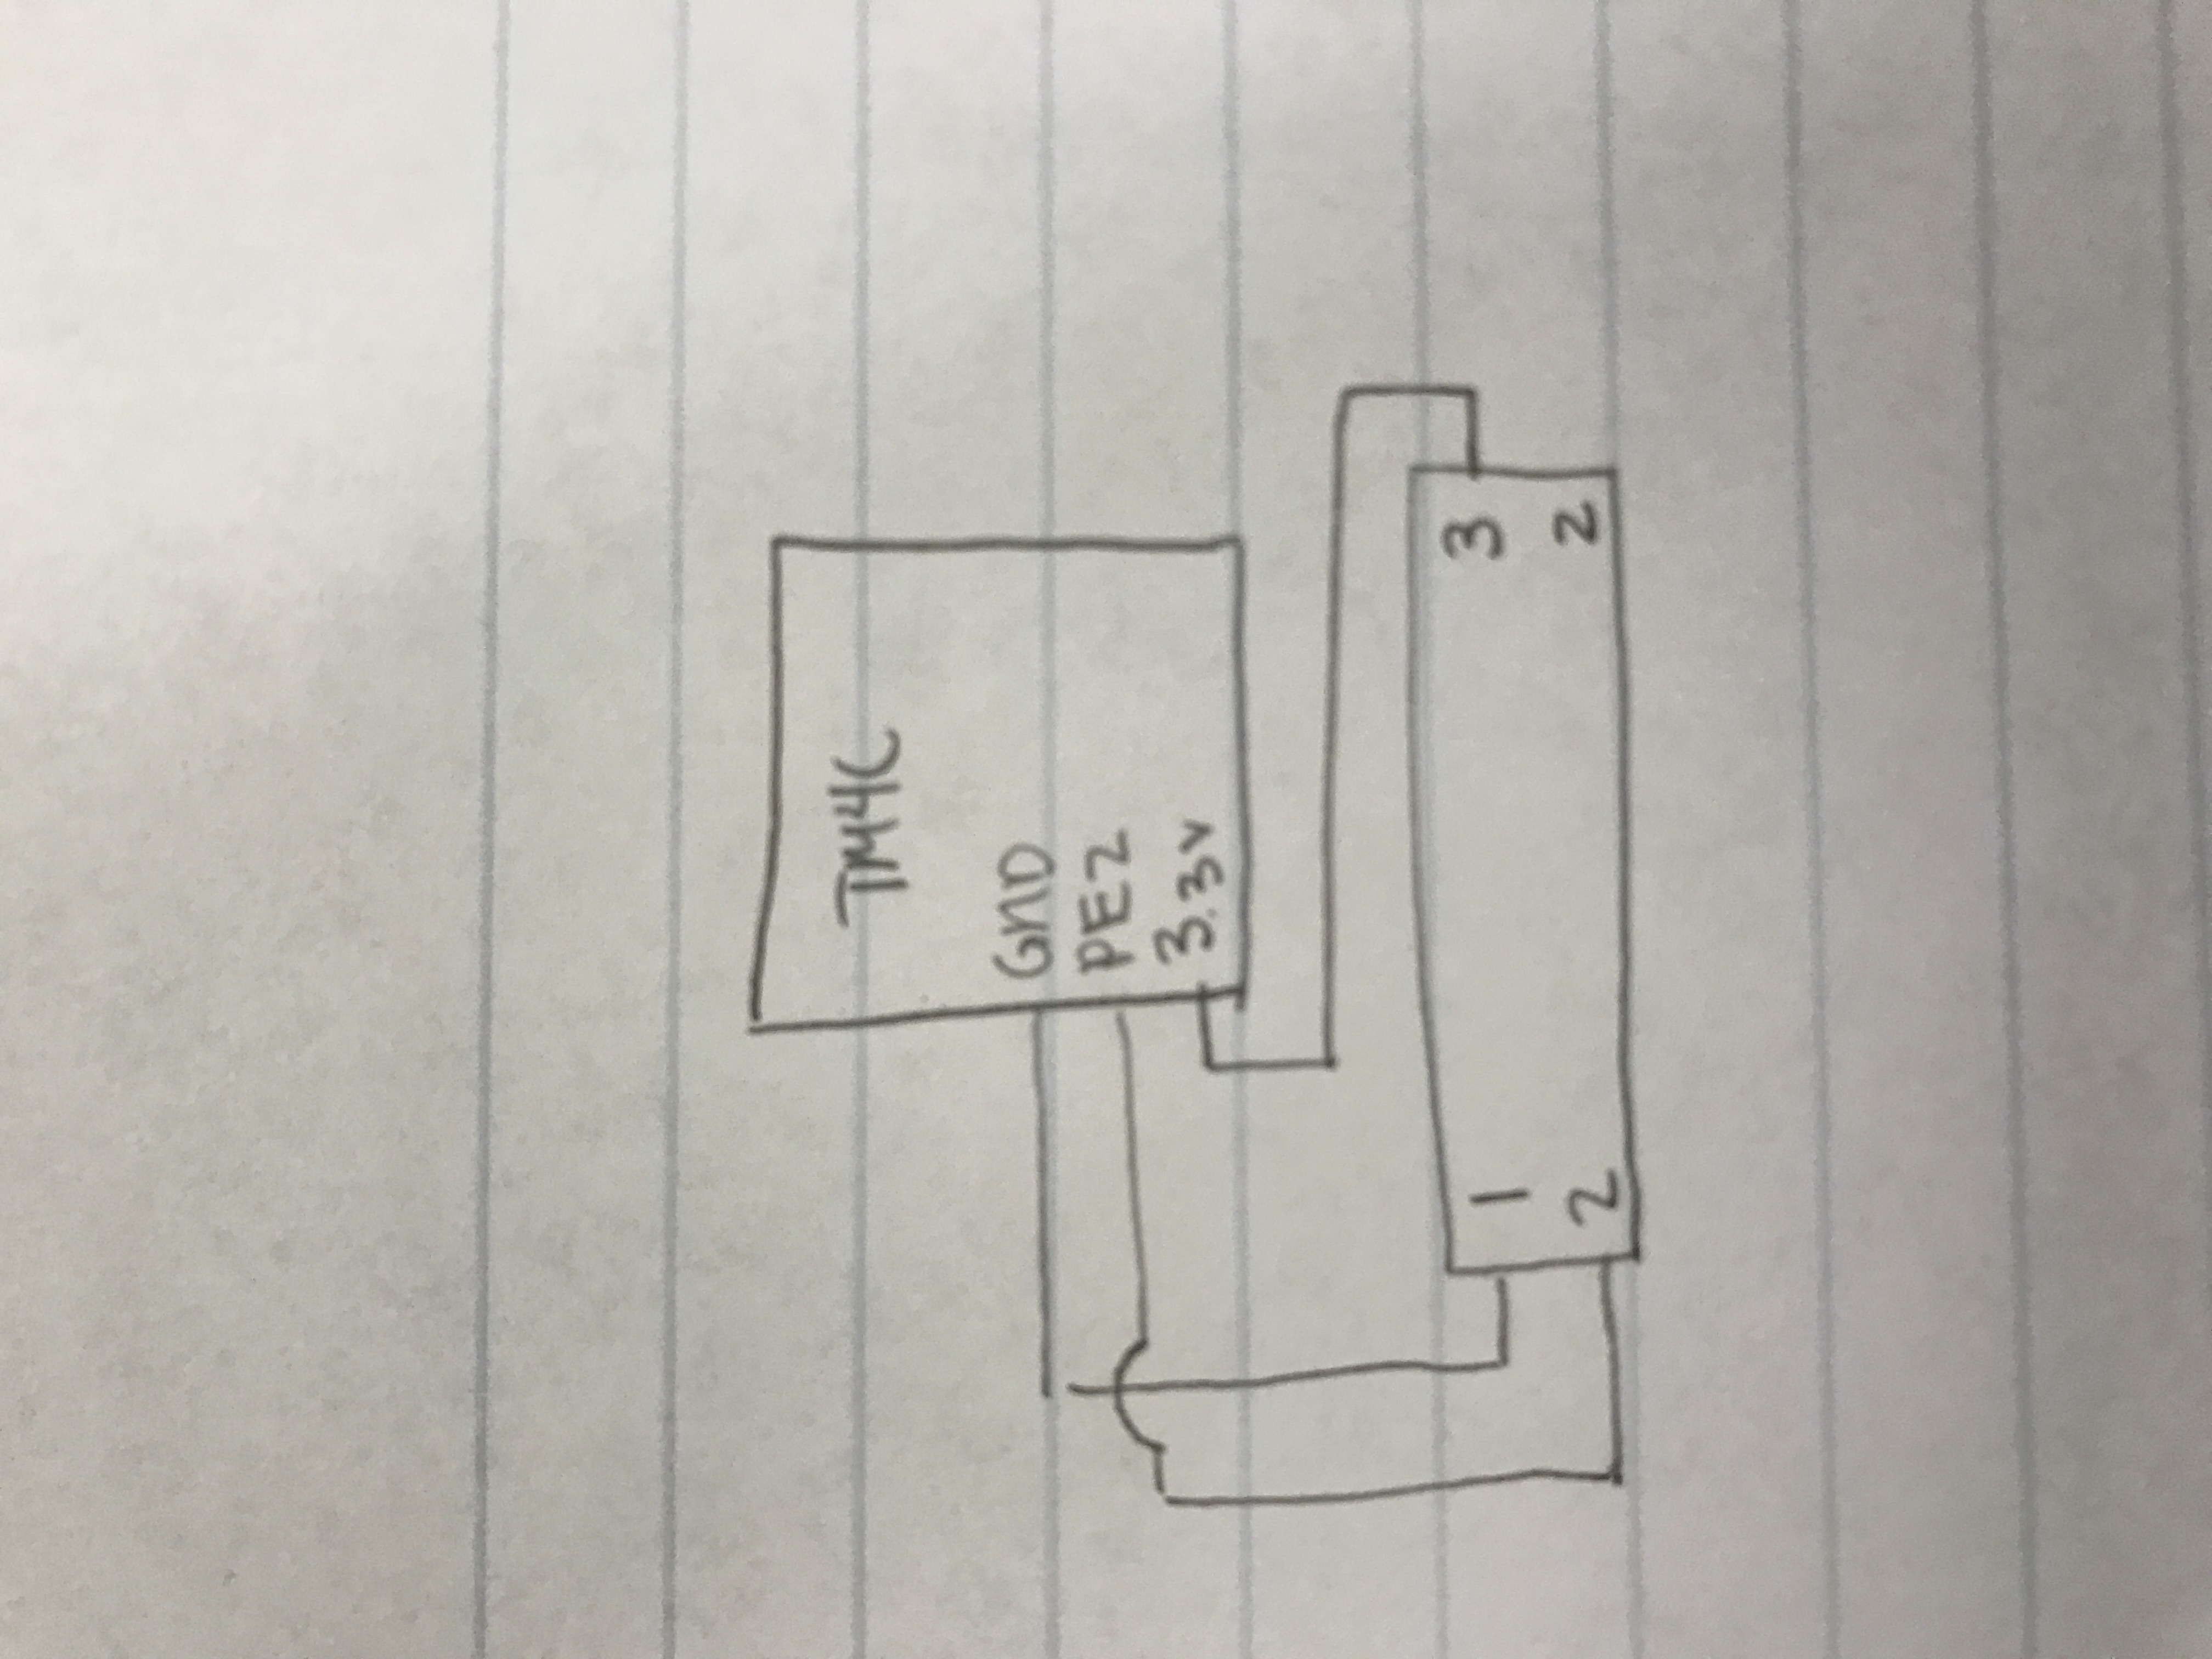 TM4C
GND
PE2
3.3v
1 3
2 2